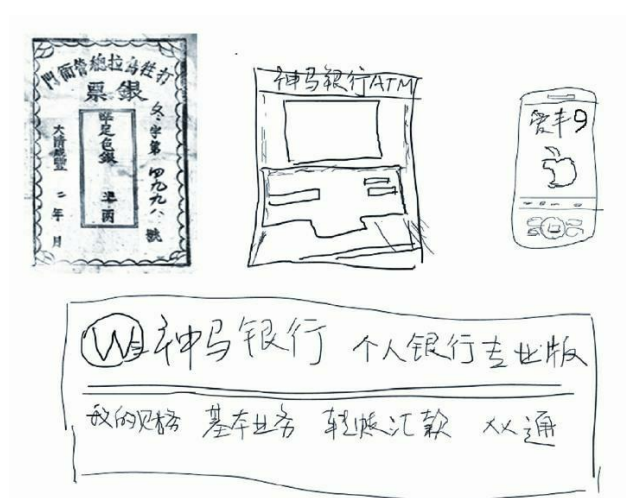 打牲烏拉總管衙門
銀票
冬字第四九九八號
足色銀
大清咸豐二年月
神马银行ATM
爱丰9
W 神马银行 个人银行专业版
我的财务 基本业务 转帐汇款 XX通